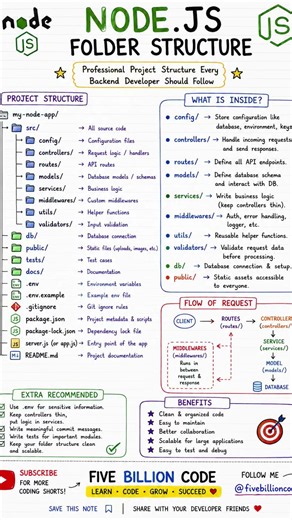 node
JS
NODE.JS
FOLDER STRUCTURE
JS
Professional Project Structure Every
Backend Developer Should Follow
PROJECT STRUCTURE
my-node-app/
src/ → All source code
config/ → Configuration files
controllers/ → Request logic / handlers
routes/ → API routes
models/ → Database models / schemas
services/ → Business logic
middlewares/ → Custom middlewares
utils/ → Helper functions
validators/ → Input validation
db/ → Database connection
public/ → Static files (uploads, images, etc.)
tests/ → Test cases
docs/ → Documentation
.env → Environment variables
.env.example → Example env file
.gitignore → Git ignore rules
package.json → Project metadata & scripts
package-lock.json → Dependency lock file
server.js (or app.js) → Entry point of the app
README.md → Project documentation
WHAT IS INSIDE?
config/ → Store configuration like
database, environment, keys
controllers/ → Handle incoming requests
and send responses.
routes/ → Define all API endpoints.
models/ → Define database schema
and interact with DB.
services/ → Write business logic
(keep controllers thin).
middlewares/ → Auth, error handling,
logger, etc.
utils/ → Reusable helper functions.
validators/ → Validate request data
before processing.
db/ → Database connection & setup.
public/ → Static assets accessible
to everyone.
FLOW OF REQUEST
CLIENT → ROUTES → CONTROLLER
(routes/) (controllers/)
MIDDLEWARES
(middlewares/)
Runs in
between
request &
response
SERVICE
(services/)
MODEL
(models/)
DATABASE
EXTRA RECOMMENDED
Use .env for sensitive information.
Keep controllers thin,
put logic in services.
Write meaningful commit messages.
Write tests for important modules.
Keep your folder structure clean
and scalable.
BENEFITS
Clean & organized code
Easy to maintain
Better collaboration
Scalable for large applications
Easy to test and debug
SUBSCRIBE
FOR MORE
CODING SHORTS!
FIVE BILLION CODE
LEARN • CODE • GROW • SUCCEED
FOLLOW ME
@fivebillionco
SAVE THIS NOTE
SHARE WITH YOUR DEVELOPER FRIENDS